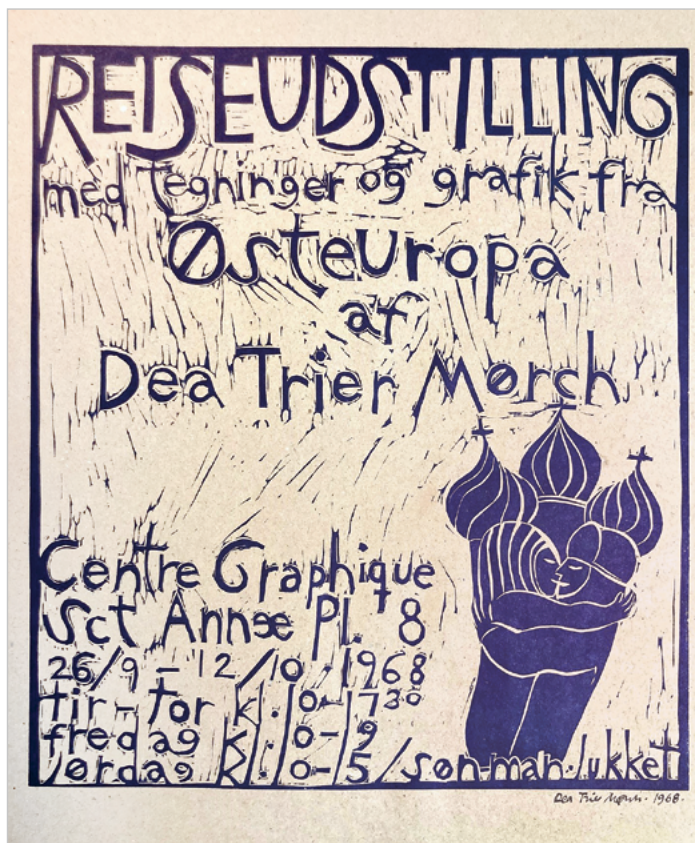 REJSEUDSTILLING
med tegninger og grafik fra
Østeuropa
af
Dea Trier Mørch
Centre Graphique
Sct Annæ Pl. 8
26/9 - 12/10 1968
tir - tor kl. 10-17³⁰
fredag kl. 10-9
lørdag kl. 10-5 / søn-man-lukket
Dea Trier Mørch. 1968.